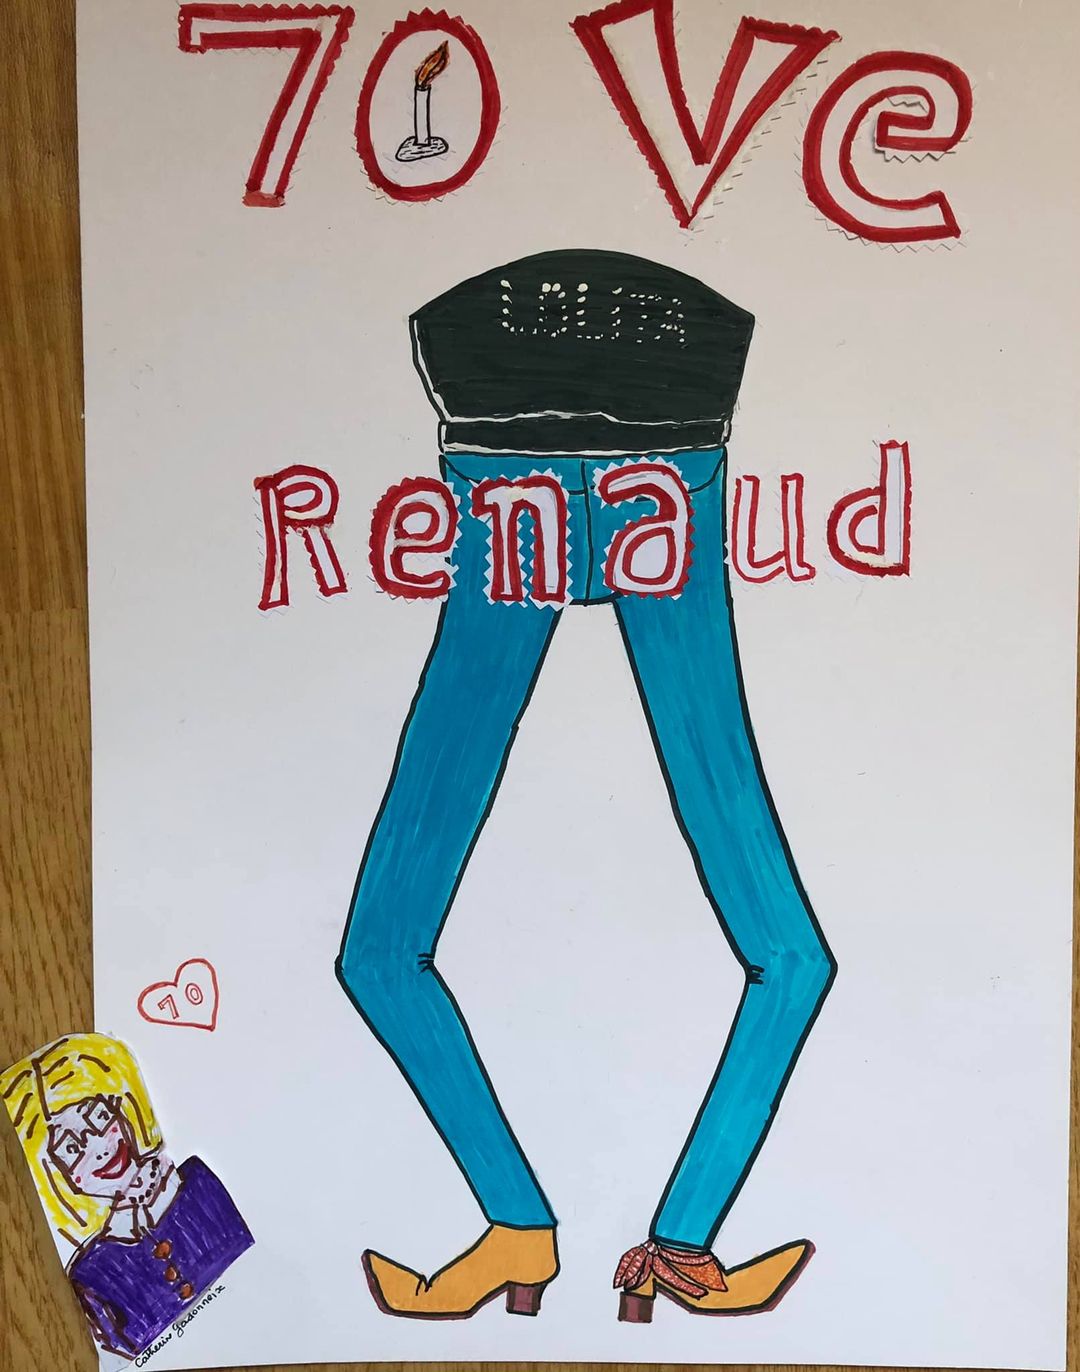 70 Ve
LOLITA
Renaud
70
Catherine Gadonneix